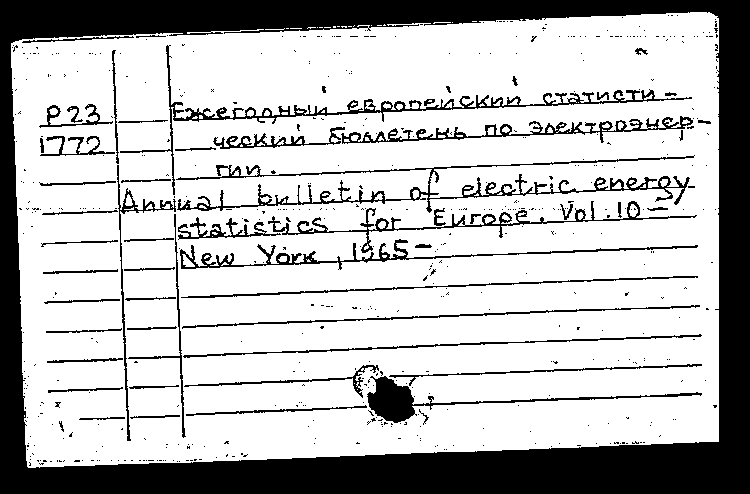 P23 Ежегодный европейский статисти-
1772 ческий бюллетень по электроэнер-
гии.
Annual bulletin of electric energy
statistics for Europe. Vol. 10 –
New York, 1965 –